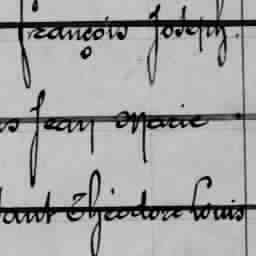 françois Joseph.
Jean Marie
Théodore Louis